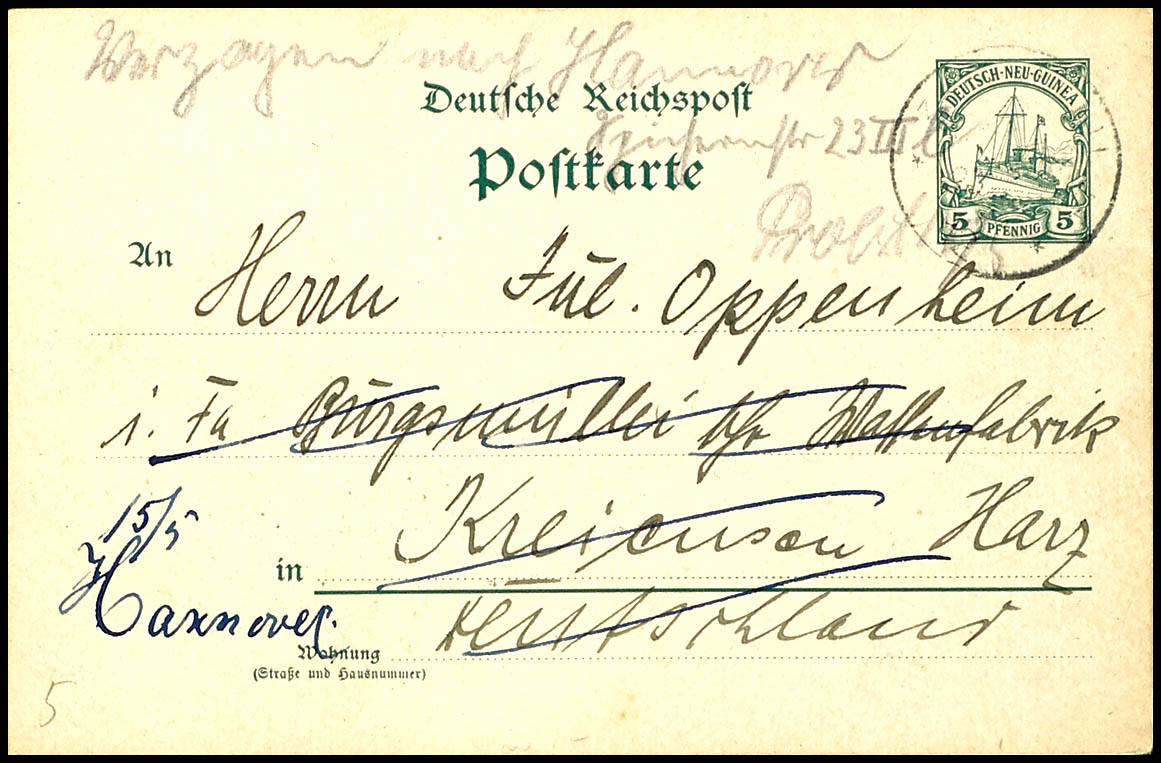 Verzogen nach Hannover
Deutsche Reichspost
23 III
Postkarte
DEUTSCH-NEU-GUINEA
5 PFENNIG 5
An
Herrn Jul. Oppenheim
i. Fa Burgsmüller Waffenfabrik
Kreiensen Harz
15/5
in
Hannover.
Deutschland
Wohnung
(Straße und Hausnummer)
5